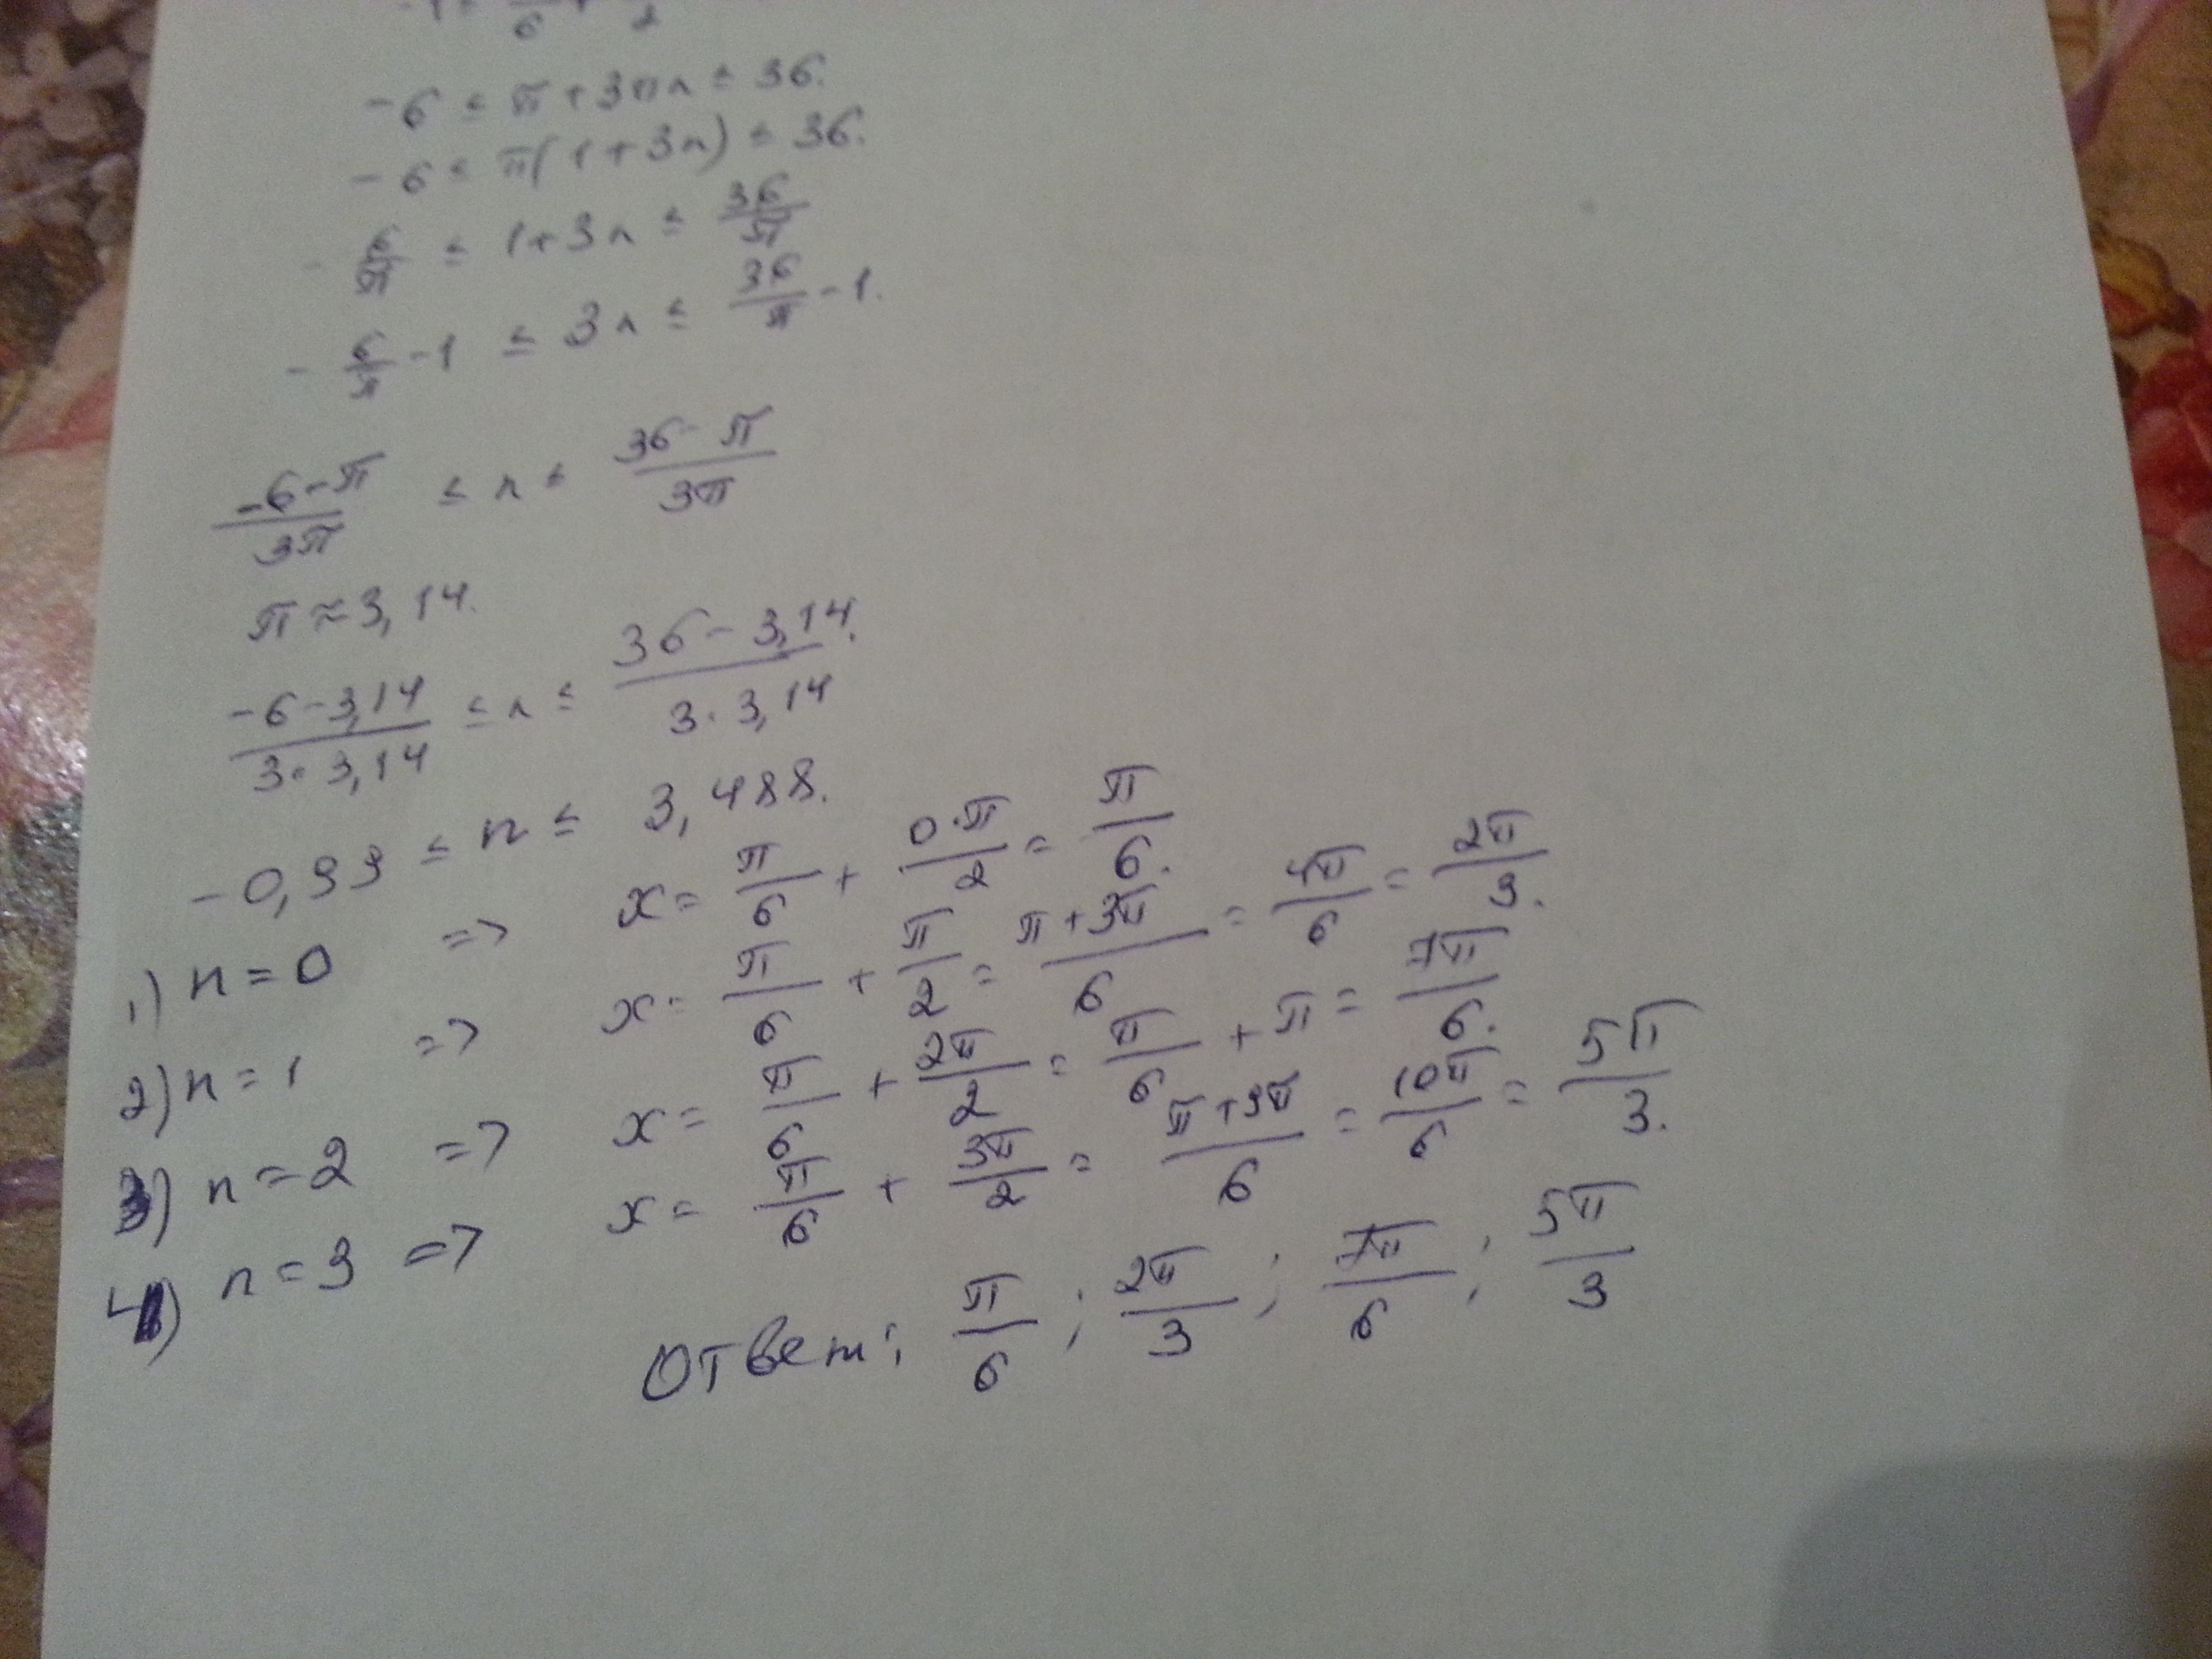 -6 ≤ π + 3πn ≤ 36.
-6 ≤ π(1+3n) ≤ 36.
-6/π ≤ 1+3n ≤ 36/π
-6/π -1 ≤ 3n ≤ 36/π -1.
(-6-π)/3π ≤ n ≤ (36-π)/3π
π ≈ 3,14.
(-6-3,14)/(3·3,14) ≤ n ≤ (36-3,14.)/(3·3,14)
-0,99 ≤ n ≤ 3,488.
1) n=0 => x= π/6 + 0·π/2 = π/6.
2) n=1 => x= π/6 + π/2 = (π+3π)/6 = 4π/6 = 2π/3.
3) n=2 => x= π/6 + 2π/2 = π/6 + π = 7π/6.
4) n=3 => x= π/6 + 3π/2 = (π+9π)/6 = 10π/6 = 5π/3.
Ответ: π/6; 2π/3; 7π/6; 5π/3